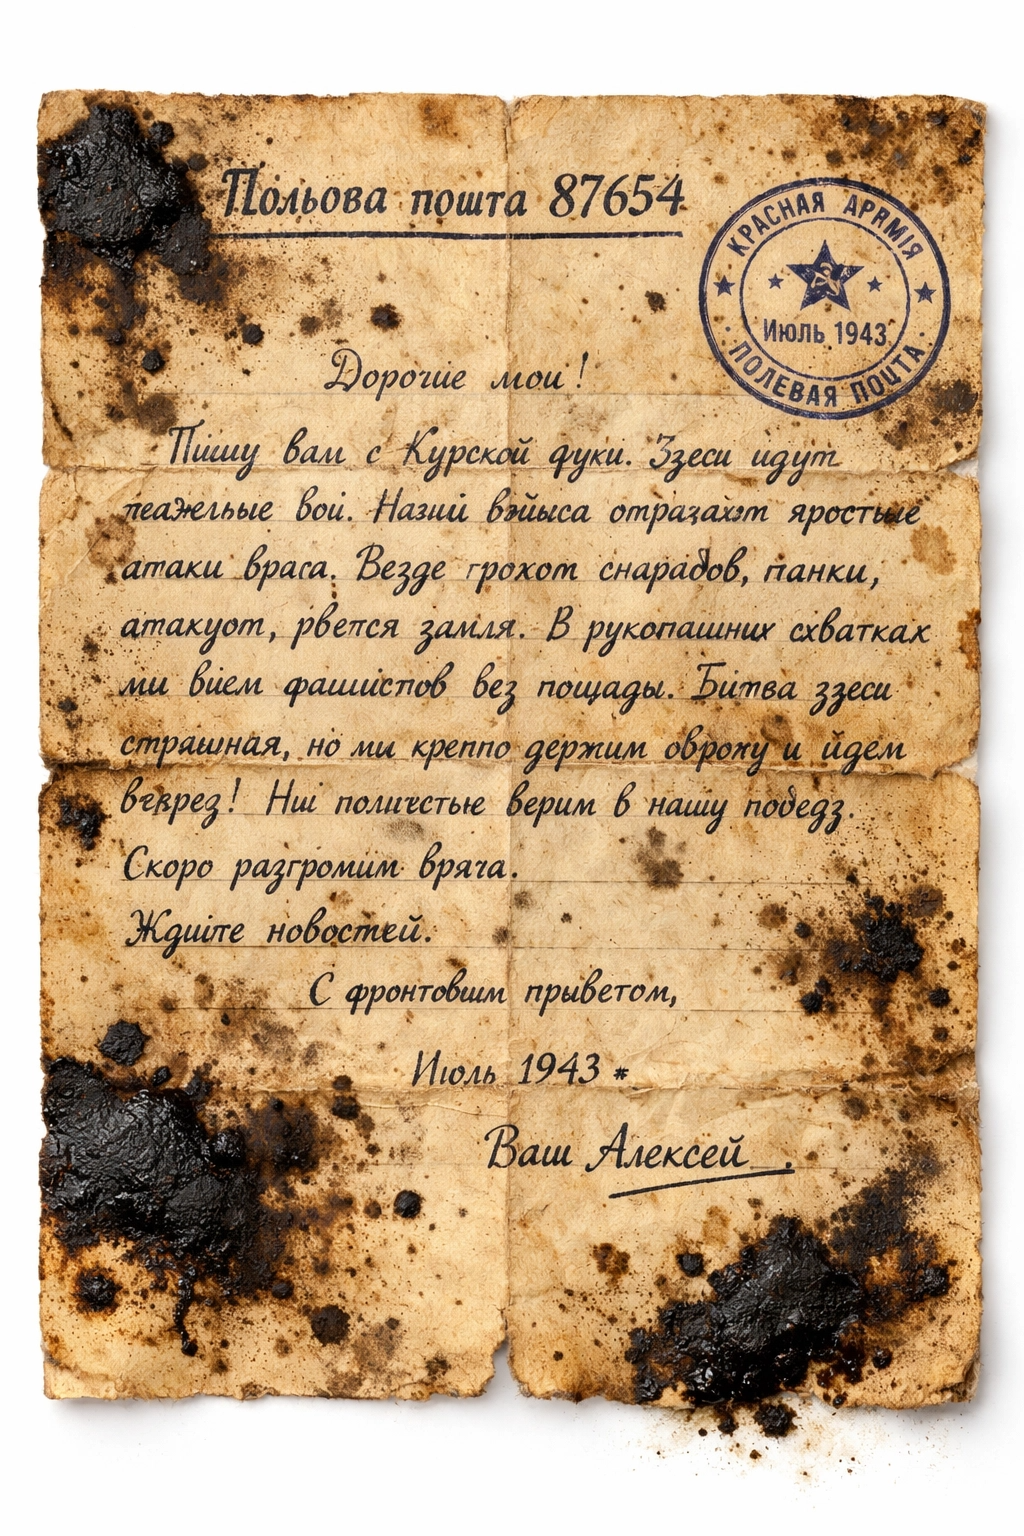 Польова пошта 87654
КРАСНАЯ АРЯМІЯ
Июль 1943
ПОЛЕВАЯ ПОЦТА
Дорогие мои!
Пишу вам с Курской фуки. Ззеси идут
вої. отразахэт яростые
атаки враса. Везде грохот снарадов, панки,
атакуот, рвепся замля. В рукопашних схватках
ми вием фашиспов вез пощады. Битва ззеси
страшная, но ми креппо держим оврону и йдем
Ниі поличстье верим в нашу победз.
Скоро разгромим врача.
Ждиіте новостей.
С фронтовым прыветом,
Июль 1943 *
Ваш Алексей.